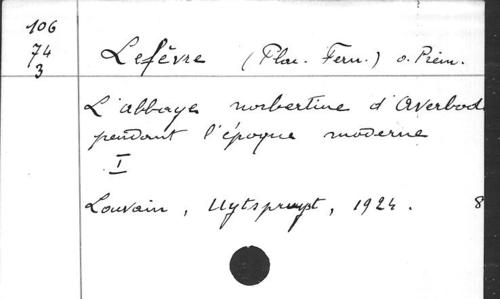 106
74
3
Lefèvre (Plac. Fern.) o. Prém.
L'abbaye norbertine d'Averbode
pendant l'époque moderne
I
Louvain, Uytspruyt, 1924. 8